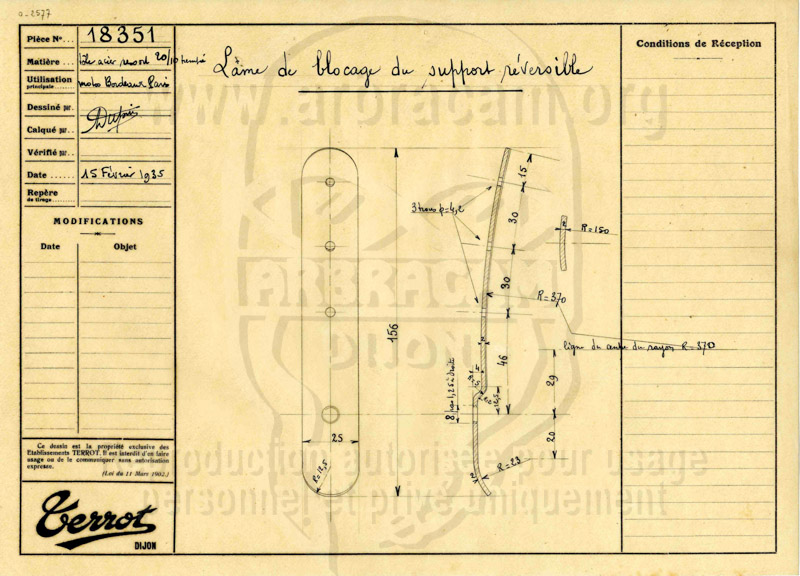 0-2577
Pièce N°... 18351
Matière... tôle acier ressort 20/10 trempé
Utilisation principale moto Bordeaux Paris
Dessiné par.
Calqué par..
Vérifié par..
Date ...... 15 Février 1935
Repère de tirage
MODIFICATIONS
Date Objet
Ce dessin est la propriété exclusive des
Etablissements TERROT. Il est interdit d'en faire
usage ou de le communiquer sans autorisation
expresse.
(Loi du 11 Mars 1902.)
Terrot
DIJON
Lame de blocage du support réversible
Conditions de Réception
www.arbracam.org
ARBRACAM
DIJON
reproduction autorisée pour usage
personnel et privé uniquement
156
25
R=12,5
3 trous φ=4,2
15
30
30
46
R=370
2
R=150
ligne du centre du rayon R=370
29
20
12,5
8 pas 1,25 à droite
R=23
2